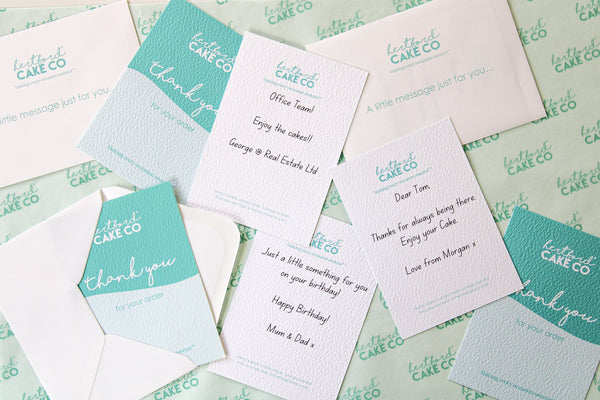 hertford
CAKE CO
Making every occasion sweeter
A little message just for you...
hertford
CAKE CO
thank you
for your order
hertford
CAKE CO
Making every occasion sweeter
Office Team!
Enjoy the cakes!!
George @ Real Estate Ltd
hertford
CAKE CO
Making every occasion sweeter
A little message just for you...
hertford
CAKE CO
Making every occasion sweeter
Dear Tom
Thanks for always being there.
Enjoy your Cake.
Love from Morgan x
hertford
CAKE CO
thank you
for your order
hertford
CAKE CO
Just a little something for you
on your birthday!
Happy Birthday!
Mum & Dad x
hertford
CAKE CO
thank you
for your order
hertford
CAKE CO